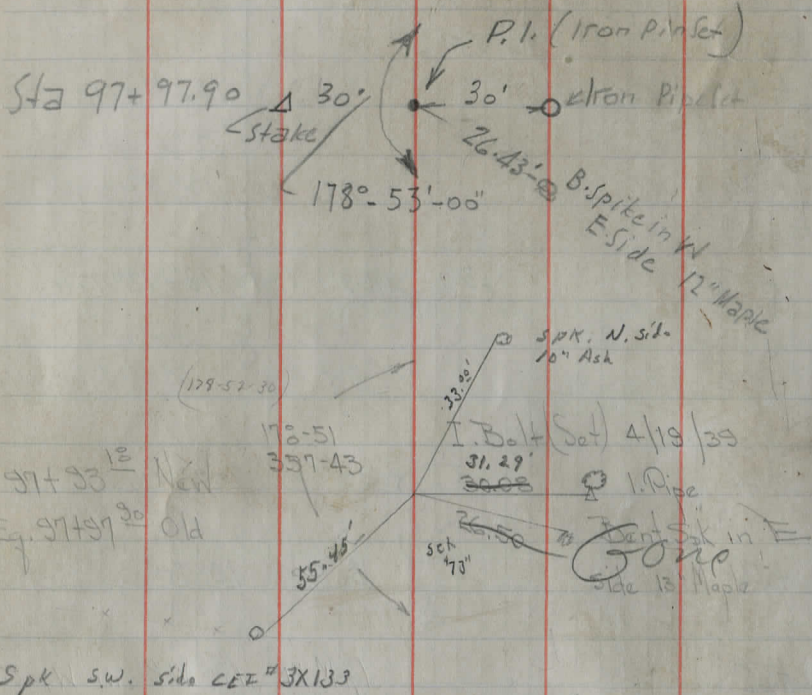 P.I. (Iron Pin Set)
Sta 97+97.90 30' 30' Iron Pipe Set
Stake
26.43'
178°-53'-00"
B. Spike in W
E. Side 12" Maple
Spk. N. Side
10" Ash
33.00'
(178-52-30)
178-51
357-43
I. Bolt (Set) 4/19/39
31.29'
30.08
I. Pipe
97+93 18 New
Eq. 97+97 90 Old
26.50
Bent Spk in E
Gone
Side 13" Maple
set
'73"
55.45'
Spk S.W. Side CEI # 3X133